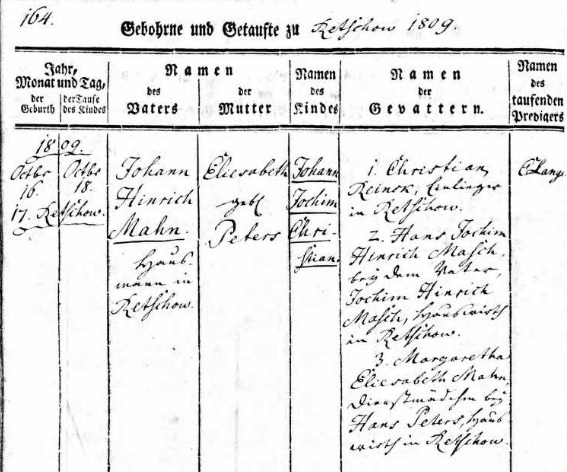 164.
Gebohrne und Getaufte zu Retschow 1809.
Jahr,
Monat und Tag,
der Geburth
der Taufe des Kindes
Namen
des
Vaters
der
Mutter
Namen
des
Kindes
Namen
der
Gevattern.
Namen
des
taufenden
Predigers
1809.
Octbr Octbr
16. 18.
17. Retschow.
Johann
Hinrich
Mahn.
Haus
mann in
Retschow.
Eliesabeth
gebl
Peters
Johann
Jochim
Chri-
stian.
1. Christian
Reinck, Einlieger
in Retschow.
2. Hans Jochim
Hinrich Masch,
bey dem Vater,
Jochim Hinrich
Masch, Hauswirth
in Retschow.
3. Margaretha
Eliesabeth Mahn,
Dienstmädchen bey
Hans Peters, Haus
wirth in Retschow.
C Lange